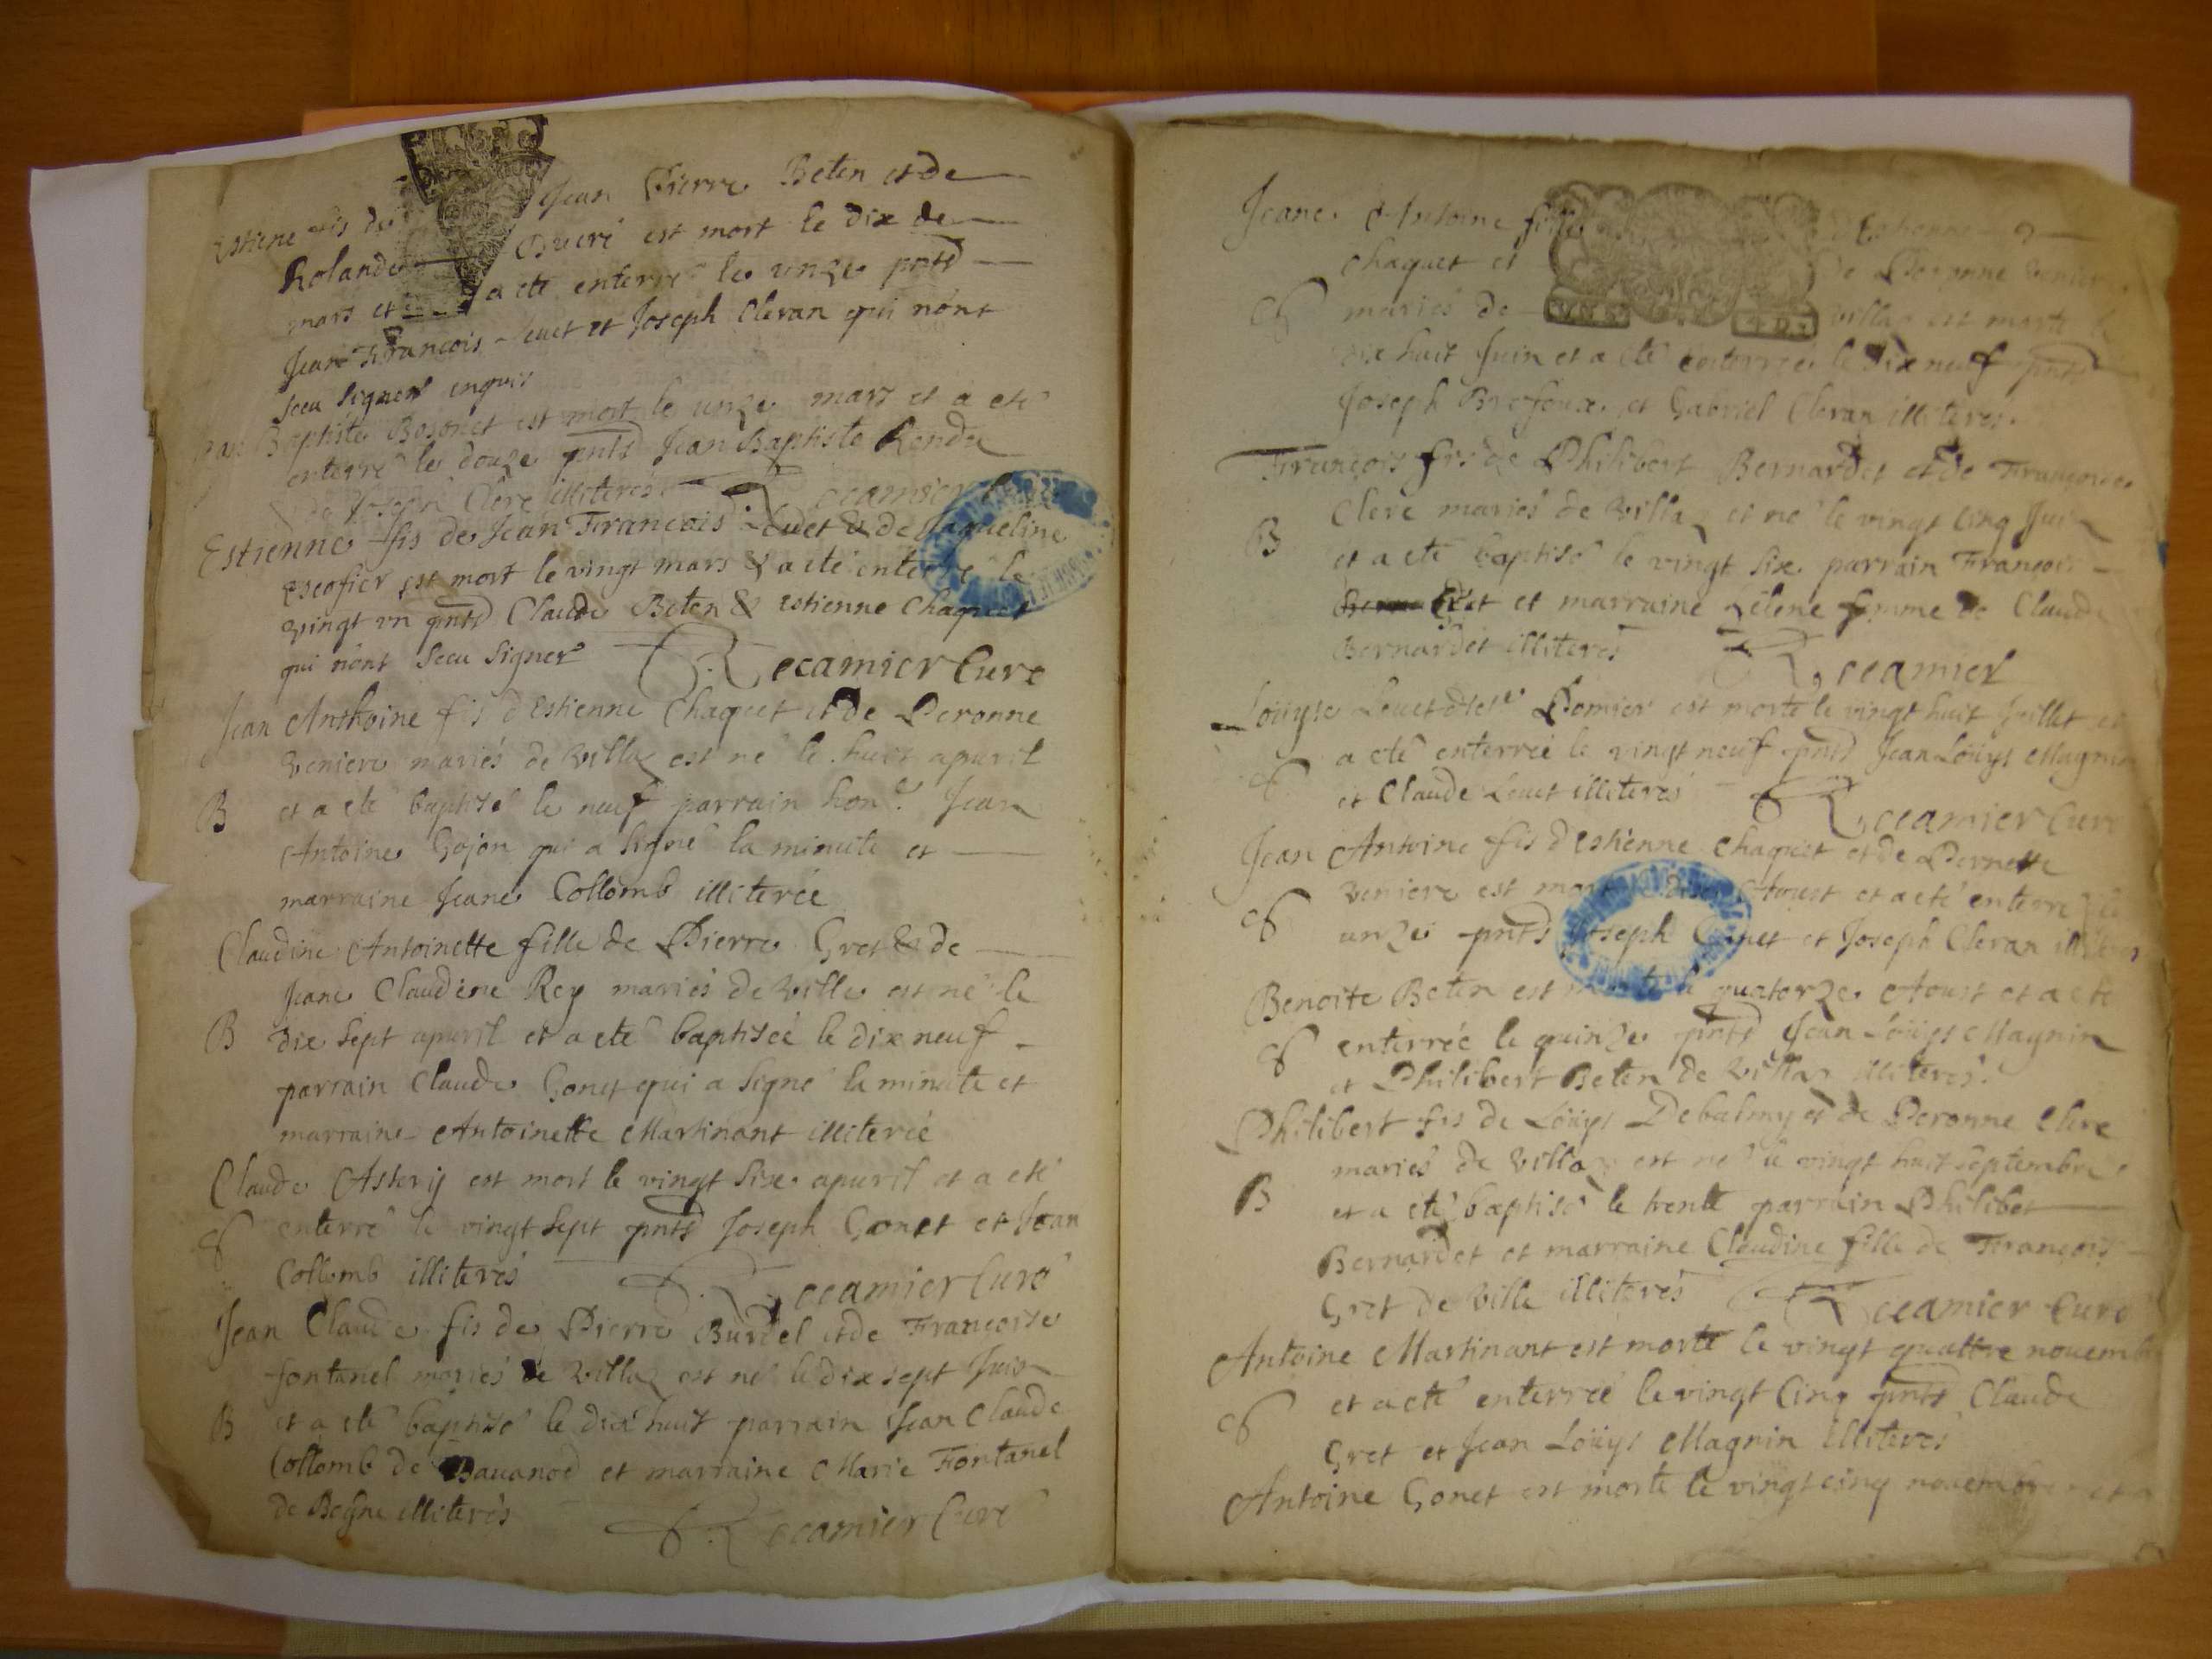 Estiene fis de Jean Pierre Beten et de
Rolande Ducré est mort le dix de
mars et a eté enterré le unze pnts
Jean François Louet et Joseph Cleran qui nònt
sceu signer enquis
Jean Baptiste Bosonet est mort le unze mars et a eté
enterré le douze pnts Jean Baptiste Rendu
Joseph Clere illiteres Recamier
Estienne fis de Jean François Louet & de Jaqueline
escofier est mort le vingt mars & a eté enterré le
vingt un pnts Claude Beten & estienne Chaquet
qui nònt sceu signer Recamier Curé
Jean Anthoine fis d'Estienne Chaquet et de Peronne
Veniere mariés de Villa est né le huit apuril
B et a eté baptisé le neuf parrain hon.e Jean
Antoine Gojon qui a signé la minute et
marraine Jeane Collomb illiterée
Claudine Antoinette fille de Pierre Gret & de
Jeane Claudine Rey mariés de Ville est né le
B dix sept apuril et a eté baptiseé le dix neuf
parrain Claude Gonet qui a signé la minute et
marraine Antoinette Martinant illiterée
Claude Astery est mort le vingt six apuril et a eté
enterré le vingt sept pnts Joseph Gonet et Jean
Collomb illiterés Recamier Curé
Jean Claude fis de Pierre Burdel et de Françoise
fontanel mariés de Villa est né le dix sept Juin
B et a eté baptisé le dix huit parrain Jean Claude
Collomb de Bavanod et marraine Marie Fontanel
de illiterés Recamier Curé
Jeane Antoine fille d'Estienne
Chaquet et de Peronne Veniere
mariés de Villa est morte le
dix huit Juin et a eté enterrée le dix neuf pnts
Joseph Brejoux et Gabriel Cleran illiteres.
François fis de Philibert Bernardet et de Françoise
Clere mariés de Villa et né le vingt cinq Juin
B et a eté baptisé le vingt six parrain François
et marraine femme de Claude
Bernardet illiterés Recamier
Loüyse Louet Pomier est morte le vingt huit Juillet et
a eté enterreé le vingt neuf pnts Jean Loüys Magnin
et Claude Louet illiterés Recamier Curé
Jean Antoine fis d'Estienne Chaquet et de Pernette
Veniere est mort Aoust et a eté enterré le
unze pnts Joseph Gonet et Joseph Cleran illiteres
Benoite Beten est morte le quatorze Aoust et a eté
enterrée le quinze pnts Jean Loüys Magnin
et Philibert Beten de Villa illiterés.
Philibert fis de Loüys Debalmy et de Peronne Clere
mariés de Villa est né le vingt huit septembre
B et a eté baptisé le trente parrain Philibet
Bernardet et marraine Claudine fille de François
Gret de Ville illiterés Recamier Curé
Antoine Martinant est morte le vingt quattre nouembre
et a eté enterreé le vingt cinq pnts Claude
Gret et Jean Loüys Magnin illiterés
Antoine Gonet est morte le vingt cinq nouembre et a